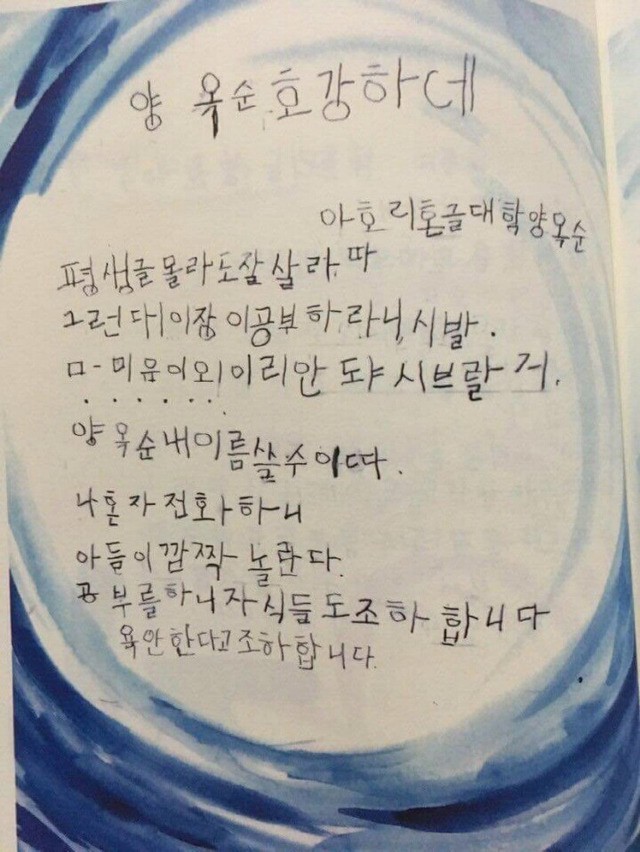 양 옥순 호강하데
아호리혼글대학양옥순
평생글몰라도잘 살라따
그런대 이장이공부하라니, 시발.
ㅁ-미음이 외 이리 안 도야 시브랄 거.
. . . . . .
양옥순내이름쓸수이따.
나혼자전화하니
아들이깜짝 놀란다.
공부를하니자식들도조하 합니다
욕안한다고조하합니다.